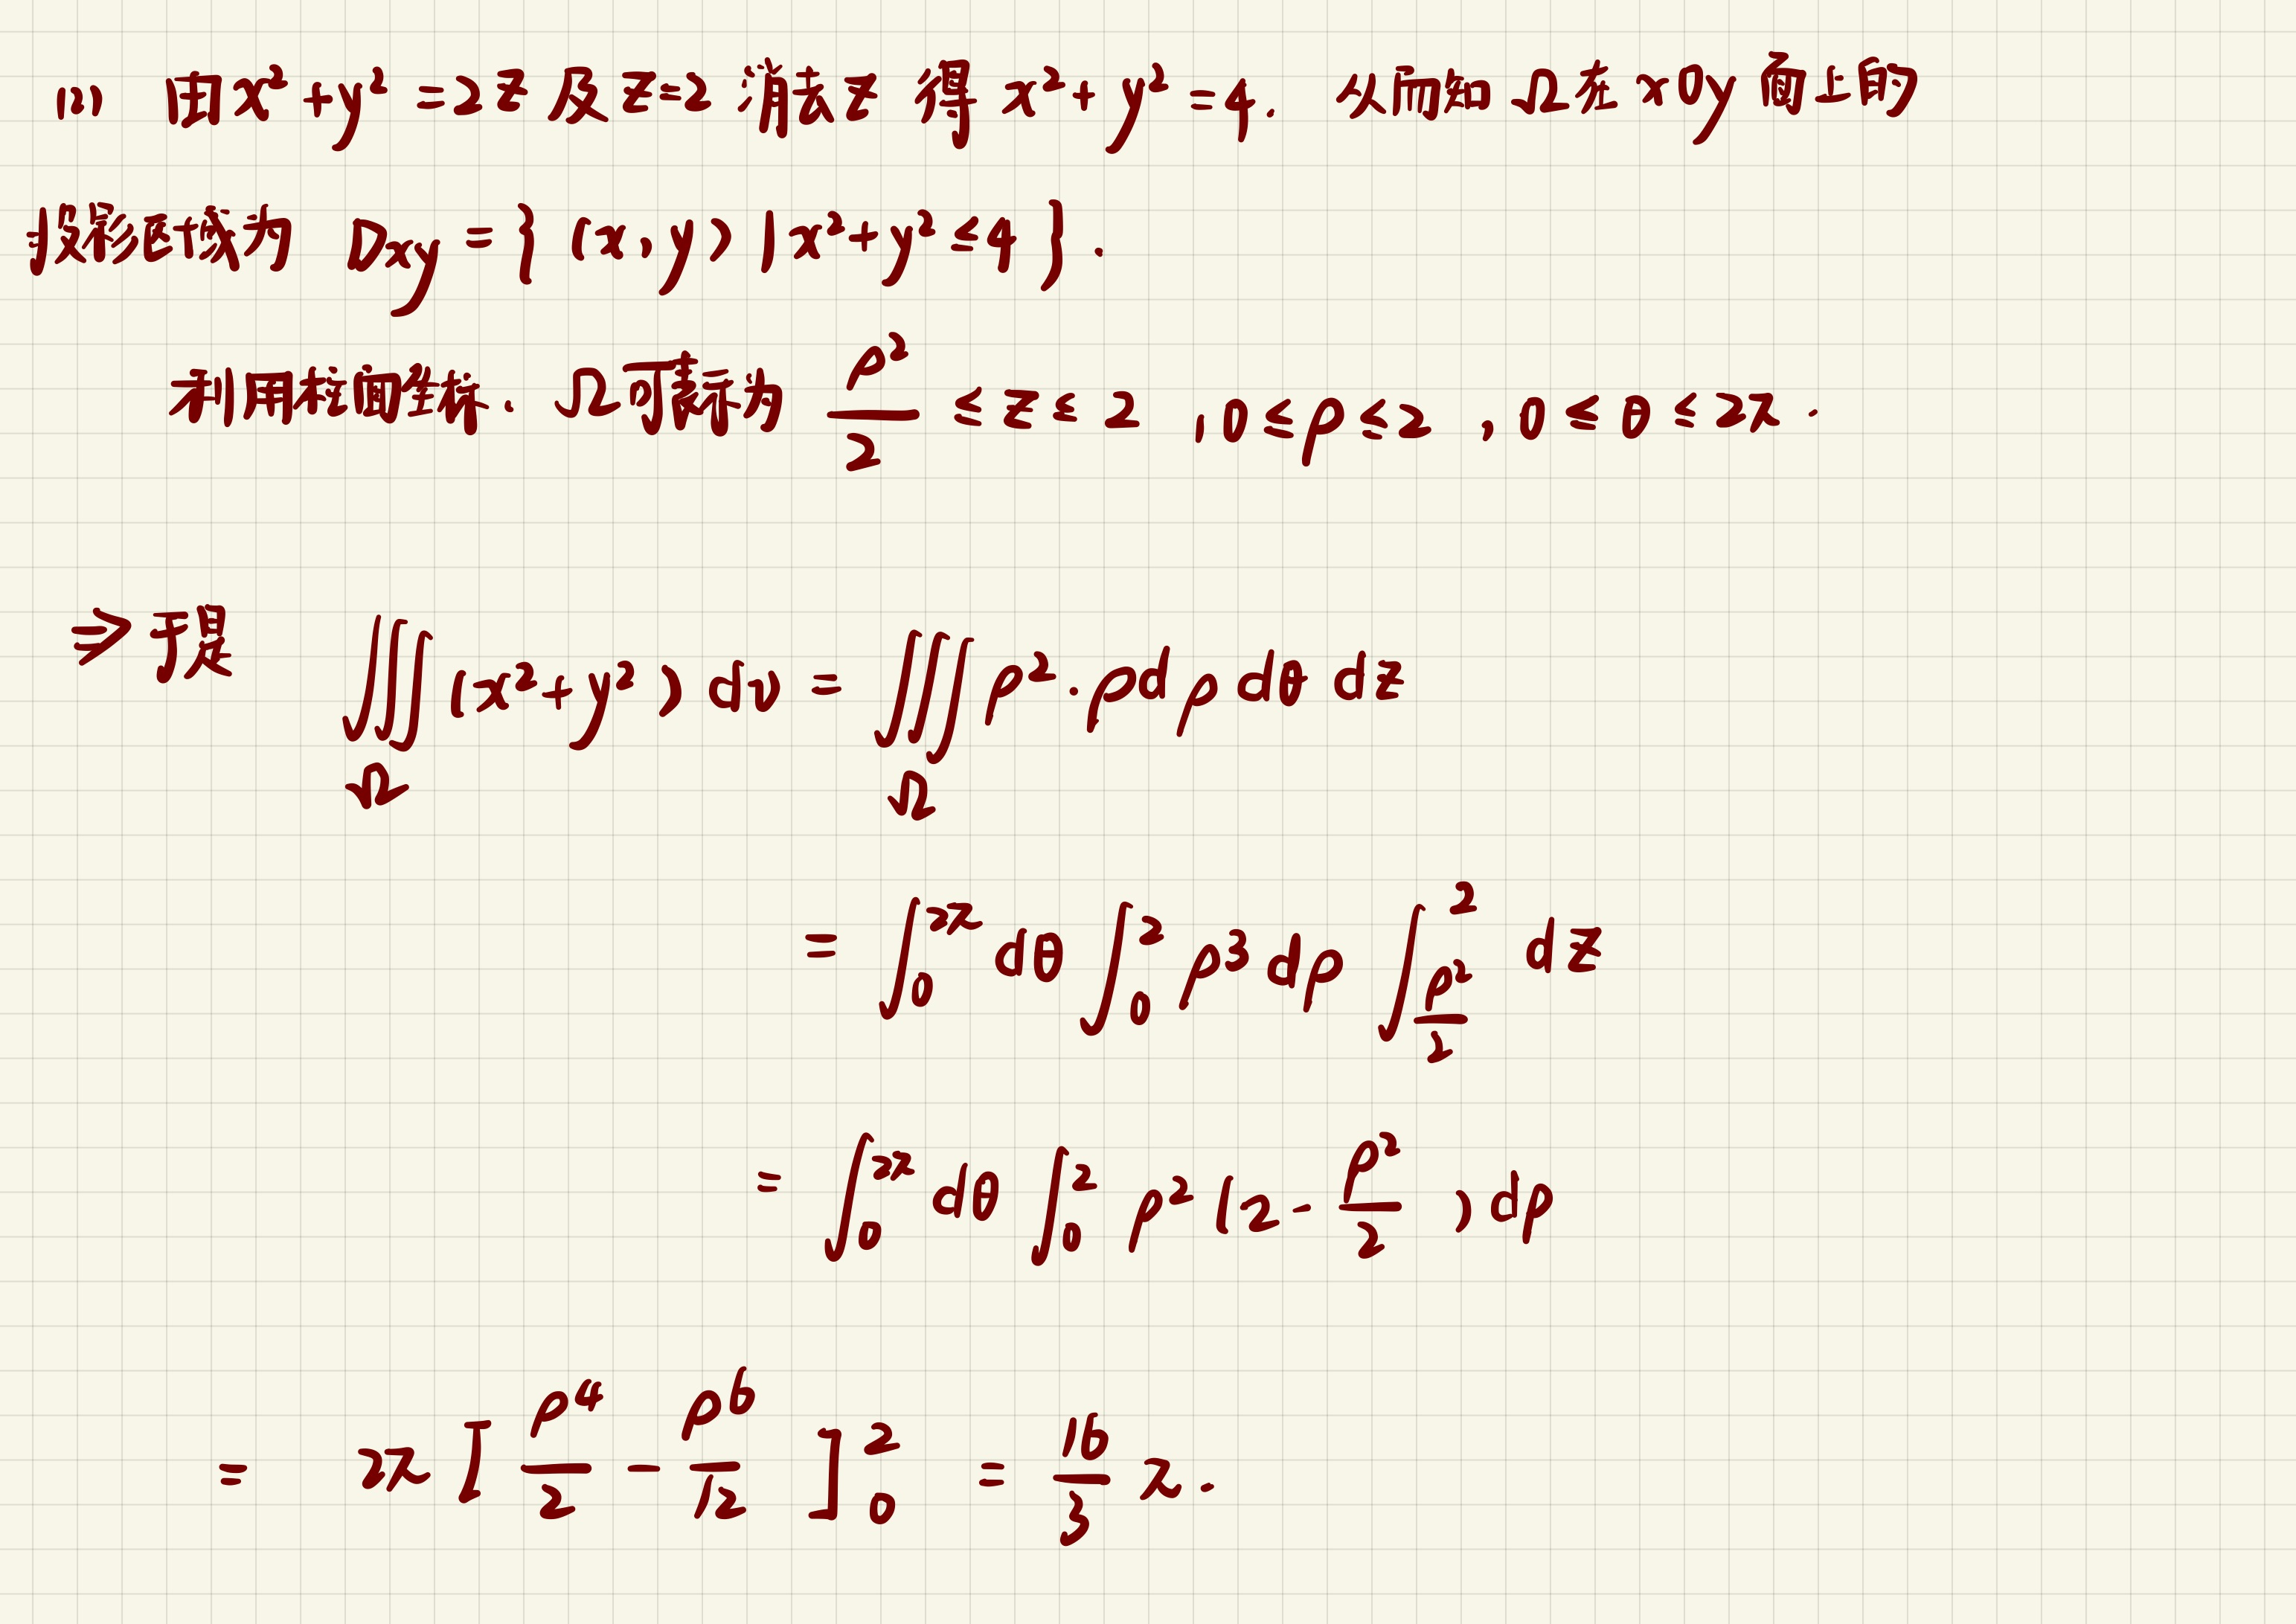 (1) 由x²+y²=2z及z=2消去z得x²+y²=4. 从而知Ω在xOy面上的
投影区域为 Dxy={(x,y)|x²+y²≤4}.
利用柱面坐标. Ω可表示为 ρ²/2 ≤z≤2 ,0≤ρ≤2 ,0≤θ≤2π.
⇒于是 ∭_Ω (x²+y²)dv = ∭_Ω ρ²·ρdρdθdz
= ∫_0^{2π} dθ ∫_0^2 ρ³dρ ∫_{ρ²/2}^2 dz
= ∫_0^{2π} dθ ∫_0^2 ρ²(2-ρ²/2)dρ
= 2π[ρ⁴/2-ρ⁶/12]_0^2 = 16/3 π.